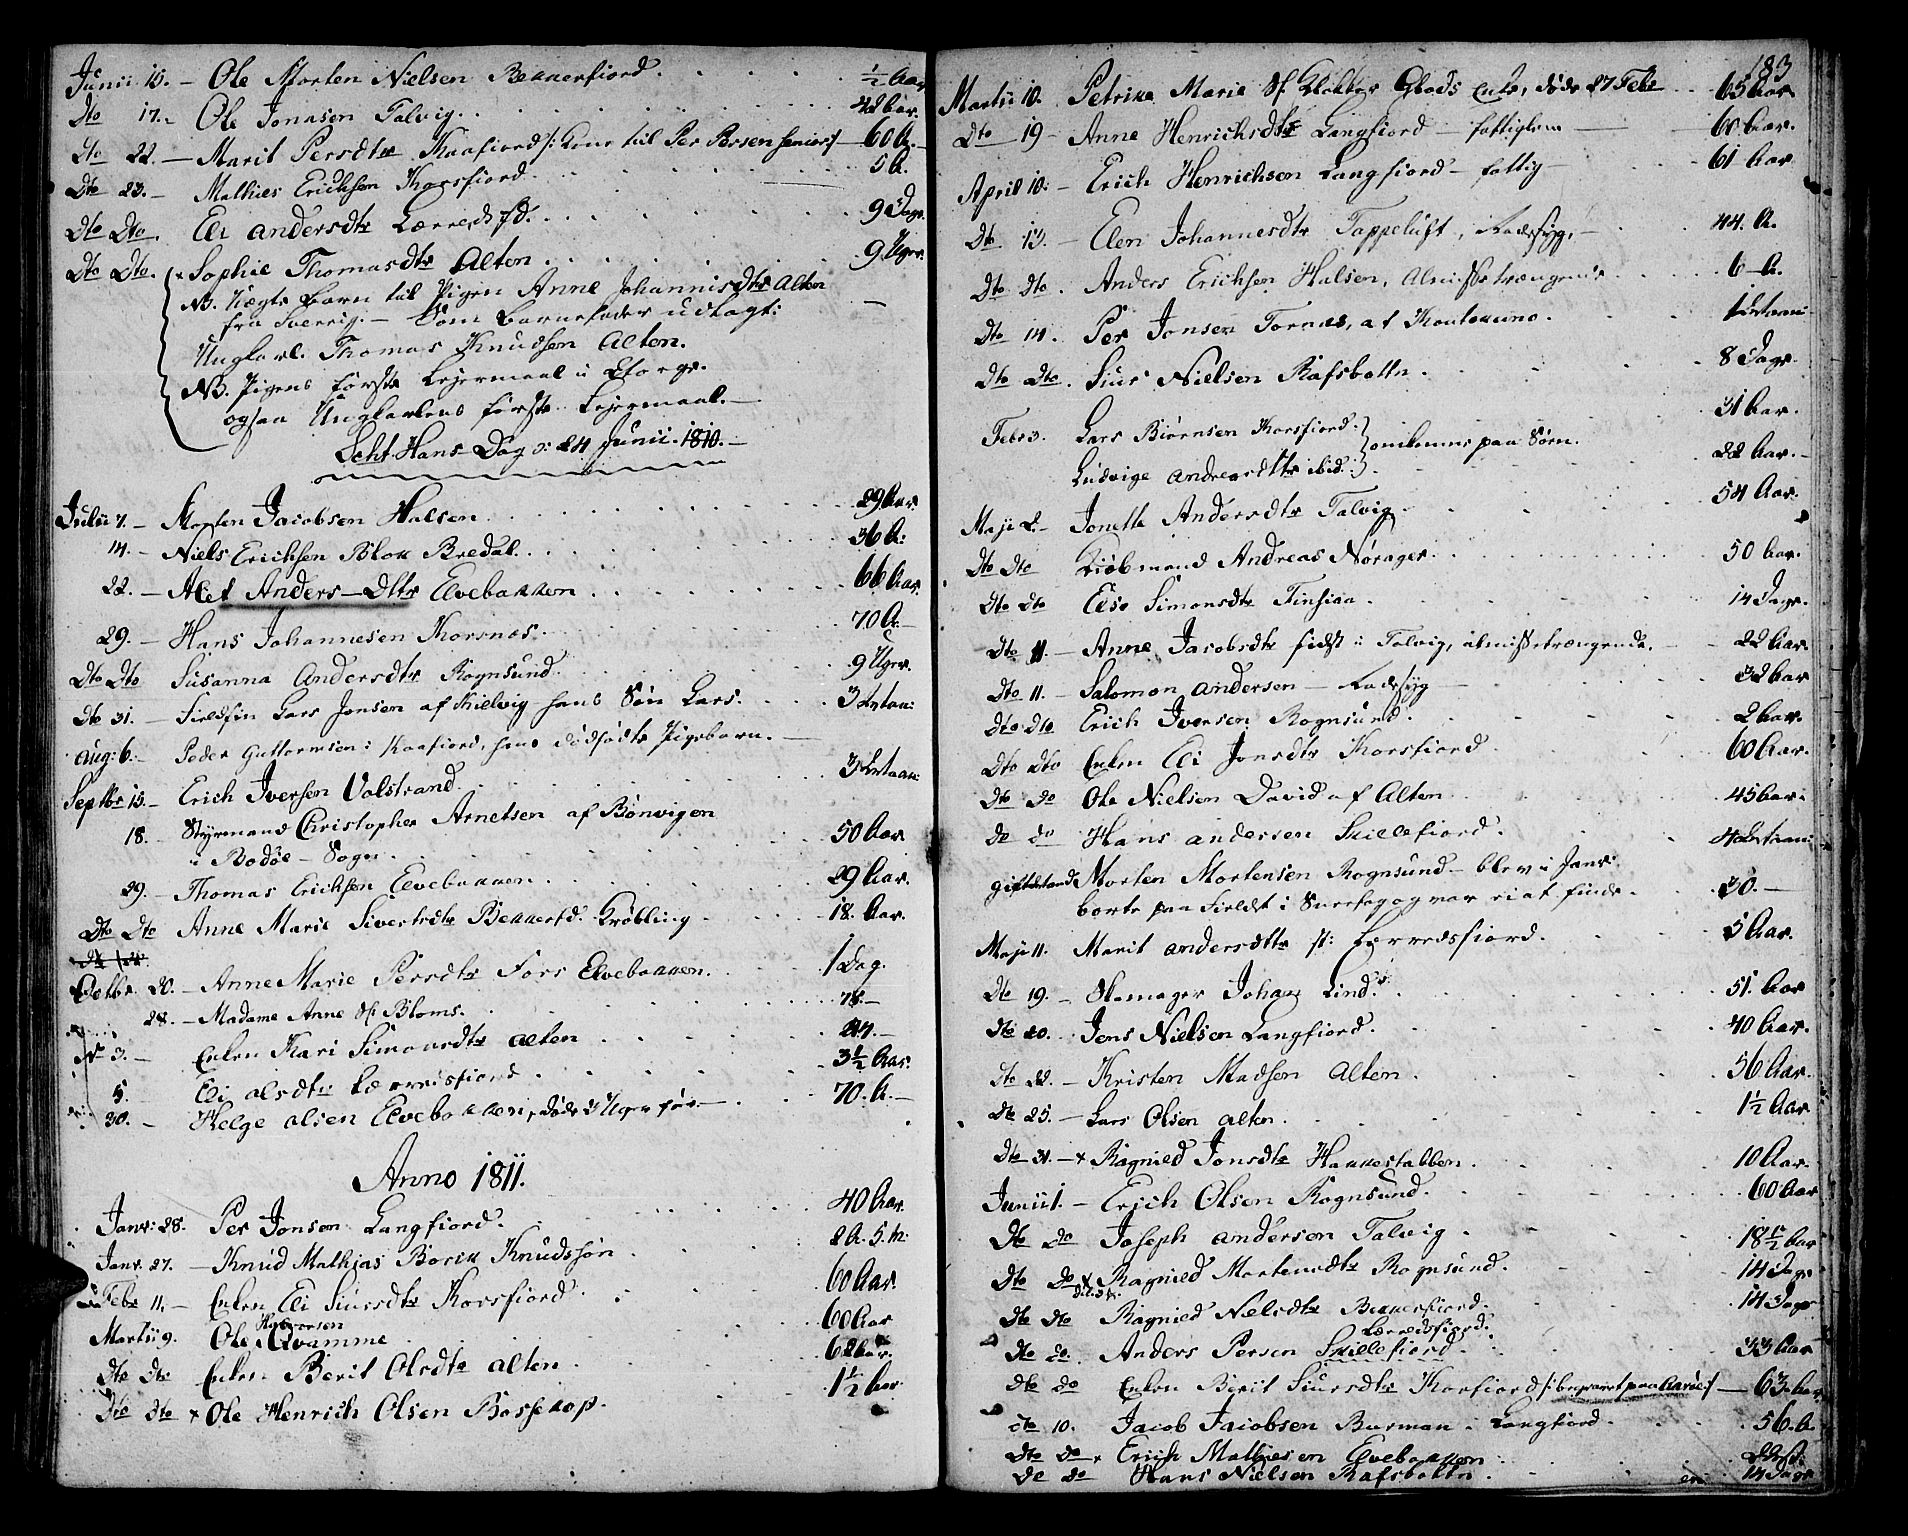 Junii 15. – Ole Morten Nielsen Bekkerfiord. ½ Aar
Dto 17. – Ole Jonasen Talvig. 42 Aar.
Dto 22. – Marit Persdtr Kaafiord /: Kone til Per Persen senior :/ – 60 A.
Dto 23. – Mathies Erichsen Korsfiord. 5 A.
Dto Dto. Eli Andersdtr Lærredsfd. 9 Dage.
Dto Dto. × Sophie Thomasdtr Alten. 9 Uger.
NB. Uægte Barn til Pigen Anne Johannisdtr Alten
fra Sverrig. – Som Barnefader udlagt:
Ungkarl Thomas Knudsen Alten.
NB. Pigens første Lejermaal i Norge.
ogsaa Ungkarlens første Lejermaal. –
Scht Hans Dag d: 24 Junii 1810. –
Julii 7. – Morten Jacobsen Halsen. 29 Aar.
14. – Niels Erichsen Blok Bredal. 36 A.
22. – Alet Anders-Dtr Elvebakken 66 Aar.
29. – Hans Johannesen Korsnæs. 70 A. –
Dto Dto Susanna Andersdtr Rognsund. 9 Uger.
Dto 31. – Fieldfin Lars Jonsen af Kielvig hans Søn Lars. 3 Aar
Aug: 6. – Peder Guttormsen i Kaafiord, hans dødfødte Pigebarn. –
Septbr 15. – Erich Iversen Valstrand.
18. Styrmand Christopher Arnetsen af Bønvigen
i Bodøe – Sogn. 50 Aar.
29. – Thomas Erichsen Elvebakken 29 Aar.
Dto Dto Anne Marie Sivertsdtr Bekkerfd. Krøbling 18. Aar.
Octbr. 20. – Anne Marie Persdtr Fors Elvebakken. 1 Dag.
28. – Madame Anne Sl. Bloms. 78. –
Nr 3. – Enken Kari Simonsdtr Alten 84. –
5. Eli Olsdtr Lærredsfiord 3½ Aar.
30. – Helge Olsen Elvebakken, døde 3 Uger før – 70. A. –
Anno 1811.
Janr: 28. Per Jonsen Langfiord. 40 Aar.
Janr. 27. – Knud Mathias Borck Knudssøn 2 A. 5. M.
Febr 11. – Enken Eli Siursdtr Korsfiord. 60 Aar.
Halvorsen
Martii 9. Ole Qvamme 60 Aar
Dto Dto Enken Berit Olsdtr Alten. 62 Aar.
Dto Dto × Ole Henrich Olsen Bossekop. 1½ Aar
183
Martii 10. Petrike Marie Sl. Klokker Glods Enke, døde 27 Febr 65 Aar
Dto 19 – Anne Henrichsdtr Langfiord – fattiglem – 60 Aar.
April 10. – Erich Henrichsen Langfiord – fattig – 61 Aar
Dto. 13. – Elen Johannesdtr Tappeluft, Radesyg, – 44. A.
Dto Dto. Anders Erichsen Halsen, Almissetrængende 6 – A.
Dto 14. Per Jonsen Tornæs, af Koutokeino.
Dto Dto. Siur Nielsen Rafsbotten. 8 Dage.
Febr 3. Lars Biørnsen Korsfiord. } omkomne paa Søen. 31 Aar.
Ludvige Andreasdtr ibid. } 22 Aar. –
Maji 2. – Jonette Andersdtr Talvig 54 Aar.
Dto Dto Kiøbmand Andreas Nørager. 50 Aar.
Dto Dto Else Simonsdtr Finsiaa. 14 Dage.
Dto 11 – Anne Jacobsdtr sidst i Talvig, almissetrængende. 22 Aar.
Dto 11. – Salomon Andersen – Radesyg – 32 Aar
Dto Dto Erich Iversen Rognsund. 2 Aar.
Dto Dto Enken Eli Jonsdtr Korsfiord 60 Aar.
Dto Do Ole Nielsen David af Alten 45 Aar.
Do Do Hans Andersen Skillefiord.
Morten Mortensen Rognsund – blev i Janr:
borte paa Fieldet i Sneefog og var ei at finde. 30. –
Maji 11. Marit Andersdtr st: Lærredsfiord. 5 Aar.
Dto 19. – Skomager Johan Lind. 51. Aar
Dto 20. Jens Nielsen Langfiord. 40 Aar.
Dto 22. – Kristen Madsen Alten 56 Aar.
Dto 25. – Lars Olsen Alten. 1½ Aar
Dto 31. – × Ragnild Jonsdtr Hakkestabben. 10 Aar.
Junii 1. – Erich Olsen Rognsund. 60 Aar
Dto Do Joseph Andersen Talvig 18½ Aar
Dto Do × Ragnild Mortensdtr Rognsund. 14 Dage
Dto Dto Ragnild Nielsdtr Bekkerfiord. 14 Dage
Lærredsfiord.
Dto do. Anders Persen Skillefiord. 33 Aar
Dto do Enken Berit Siursdtr Korsfiord /: begravet paa Aarøe :/ – 63. Aar
dto 10. Jacob Jacobsen Burman i Langfiord. 56. A
Dto Do. × Erich Mathiesen Elvebakken
Do do Hans Nielsen Rafsbotten 14 Dage